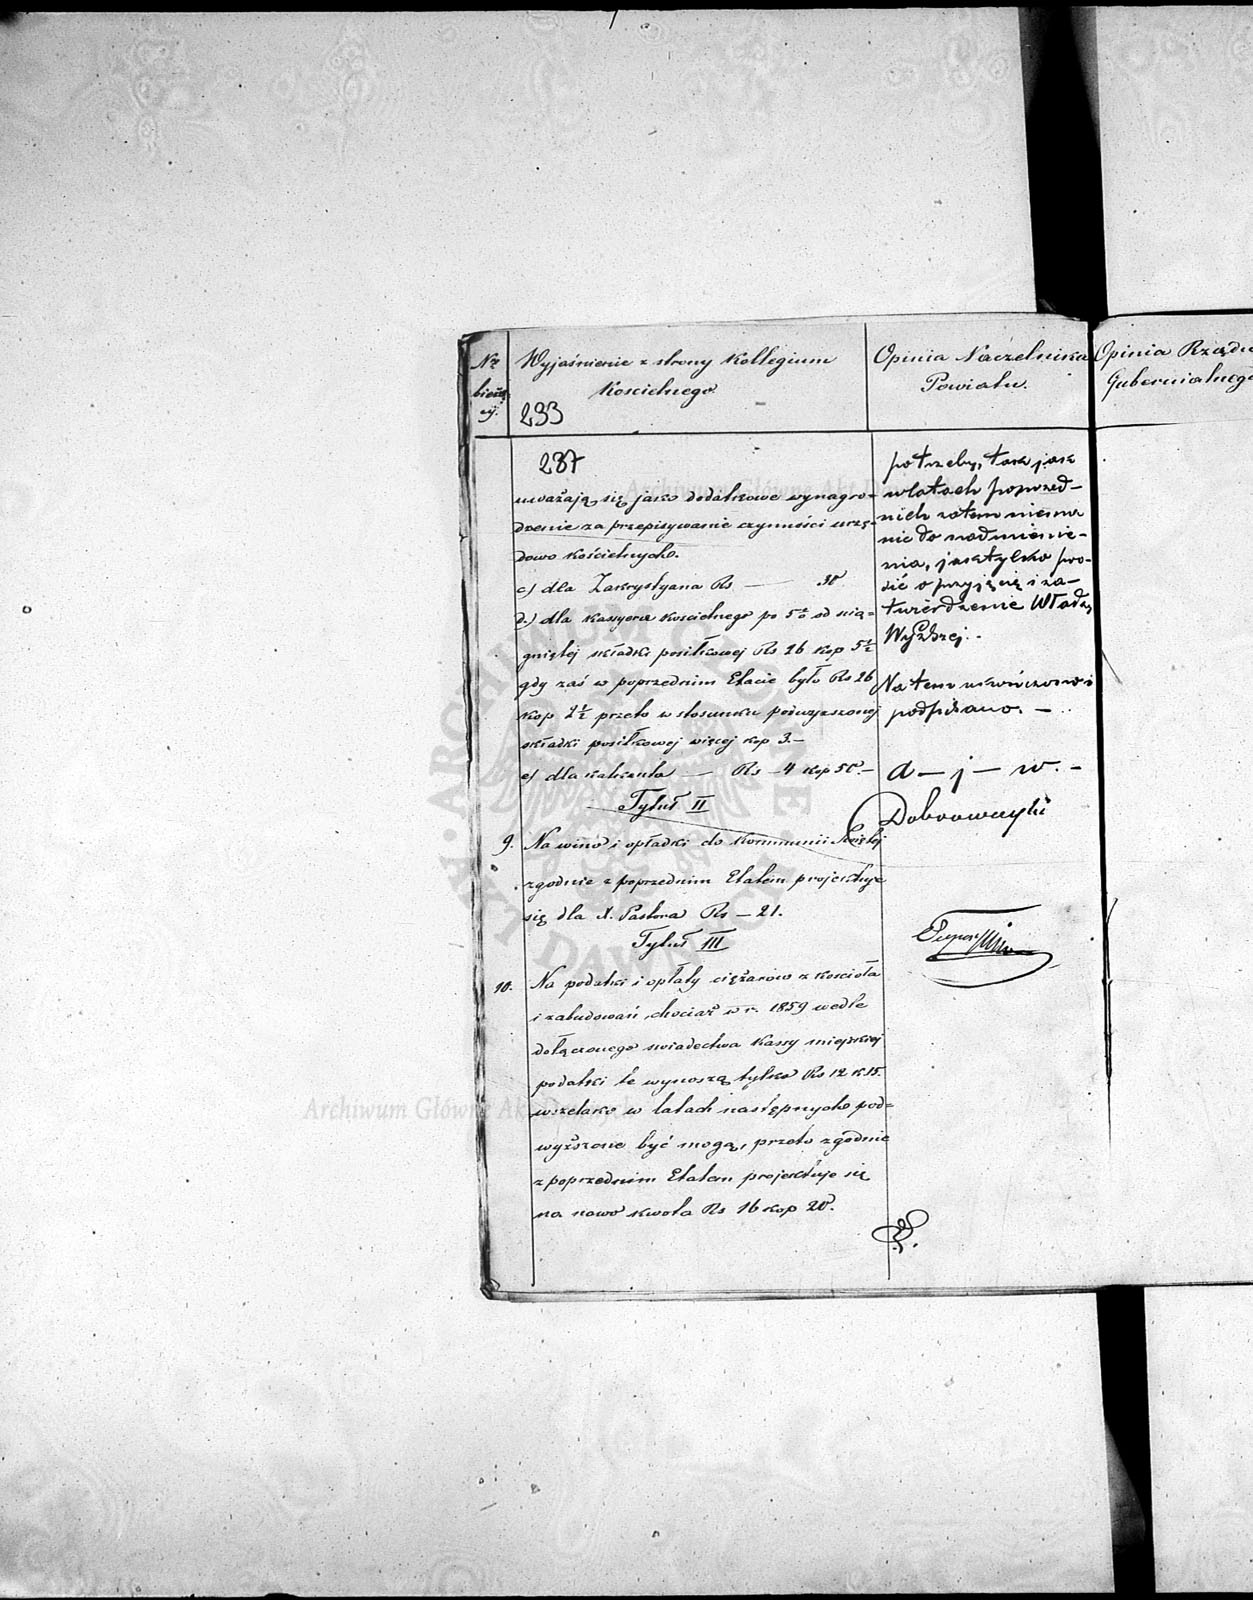 Nr bieżą
cy.
Wyjaśnienie z strony Kollegium
Kościelnego
293
Opinia Naczelnika
Powiatu.
Opinia Rządu
Gubernialnego
287
uważają się jako dodatkowe wynagro=
dzenie za przepisywanie czynności urzę=
dowo kościelnych.
c) dla Zakrystyana Rs — 30
d.) dla kassyera kościelnego po 5% od ścią=
gniętej składki posiłkowej Rs 26 kop 5½
gdy zaś w poprzednim Etacie było Rs 26
kop 2½ przeto w stosunku podwyższonej
składki posiłkowej więcej kop 3.—
e) dla kalkanta — Rs — 4 kop 50.—
Tytuł II
9. Na wino i opłatki do Kommunii Świętej
zgodnie z poprzednim Etatem projektuje
się dla X. Pastora Rs — 21.
Tytuł III
10. Na podatki i opłaty ciężarów z kościoła
i zabudowań, chociaż w r. 1859 wedle
dołączonego świadectwa Kassy miejskiej
podatki te wynoszą tylko Rs 12 k 15.
wszelako w latach następnych pod=
wyższone być mogą, przeto zgodnie
z poprzednim Etatem projektuje się
na nowo kwota Rs 16 kop 20.
potrzeby, tak jak
w latach poprzed-
nich zatem niema
nic do nadmienie-
nia, jak tylko pro-
sić o przyjęcie i za-
twierdzenie Władzy
Wyższej.-
Na tem ukończono i
podpisano. —
a — j — w. -
Dobrowolski
Archiwum Główne Akt Dawnych
Archiwum Główne Akt Dawnych
ARCHIWUM GŁÓWNE AKT DAWNYCH